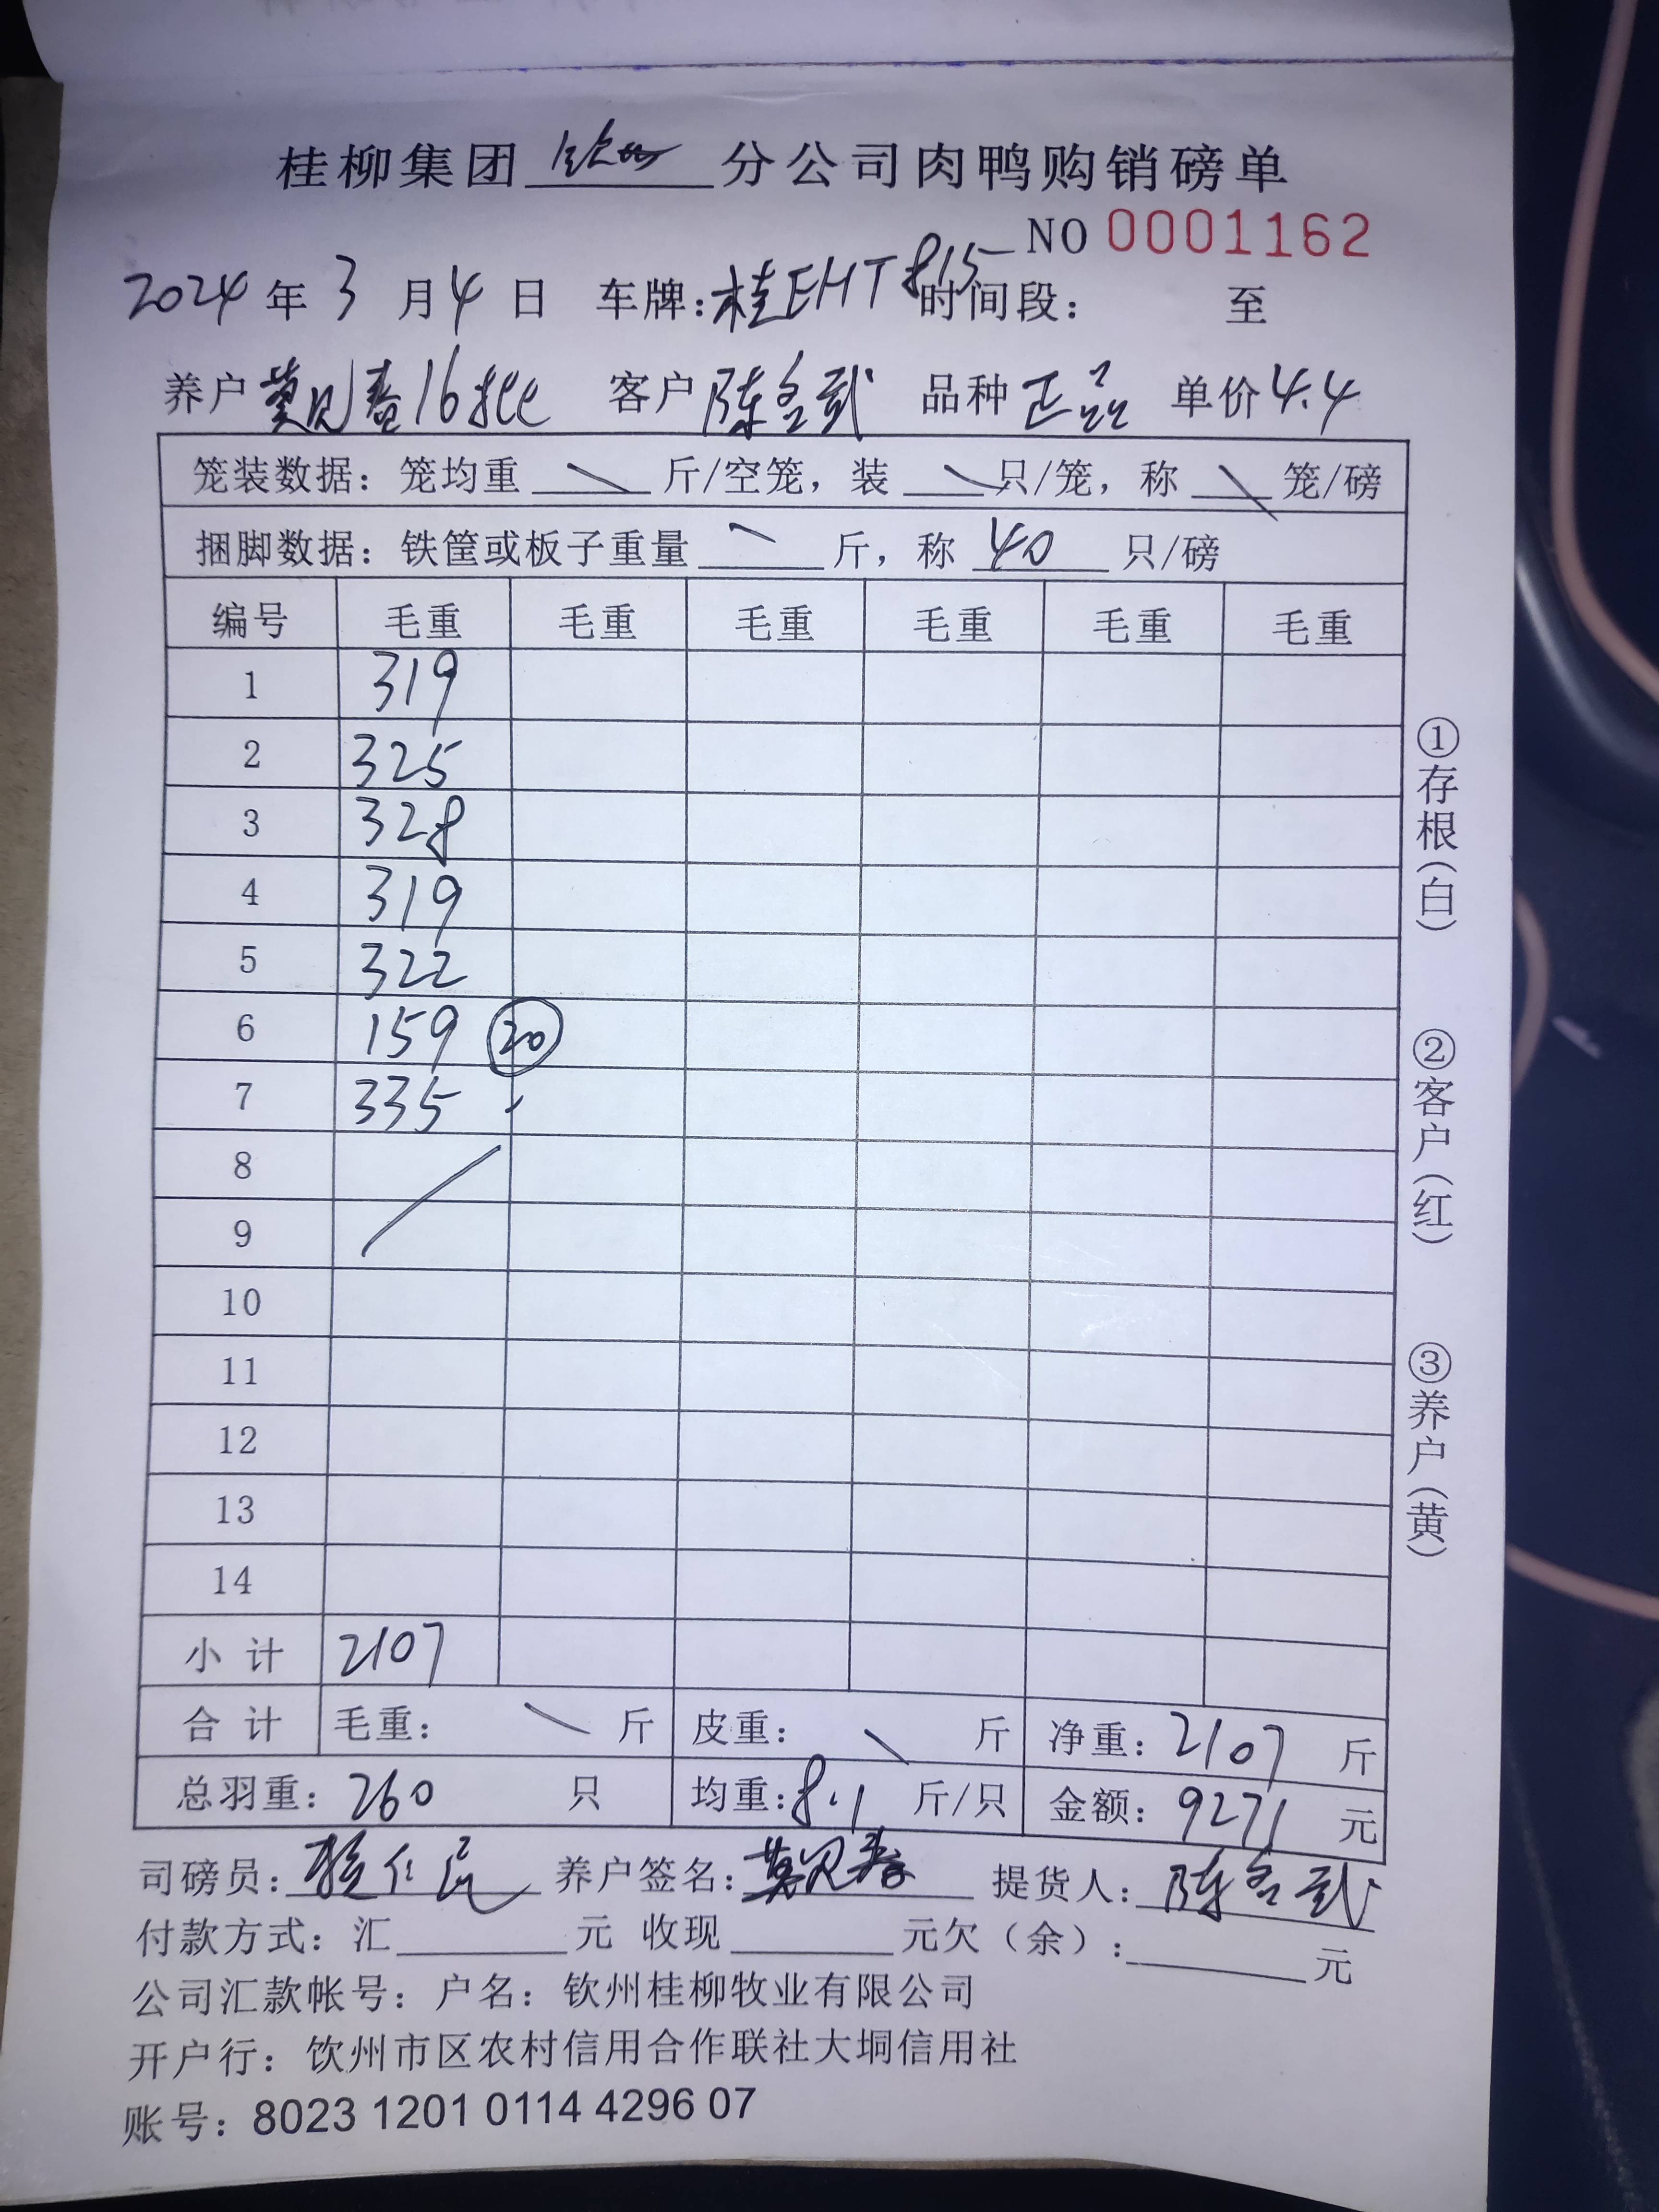 桂柳集团 钦州 分公司肉鸭购销磅单
NO 0001162
2024 年 3 月 4 日 车牌：桂EHT815 时间段： 至
养户 莫见春16批 客户 陈名武 品种 正品 单价 4.4
笼装数据：笼均重 斤/空笼，装 只/笼，称 笼/磅
捆脚数据：铁筐或板子重量 斤，称 40 只/磅
编号 毛重 毛重 毛重 毛重 毛重 毛重
1 319
2 325
3 328
4 319
5 322
6 159 20
7 335
8
9
10
11
12
13
14
小计 2107
合计 毛重： 斤 皮重： 斤 净重：2107 斤
总羽重：260 只 均重：8.1 斤/只 金额：9271 元
司磅员： 养户签名：莫见春 提货人：陈名武
付款方式：汇 元 收现 元欠（余）： 元
公司汇款帐号：户名：钦州桂柳牧业有限公司
开户行：饮州市区农村信用合作联社大垌信用社
账号：8023 1201 0114 4296 07
①存根（白）
②客户（红）
③养户（黄）